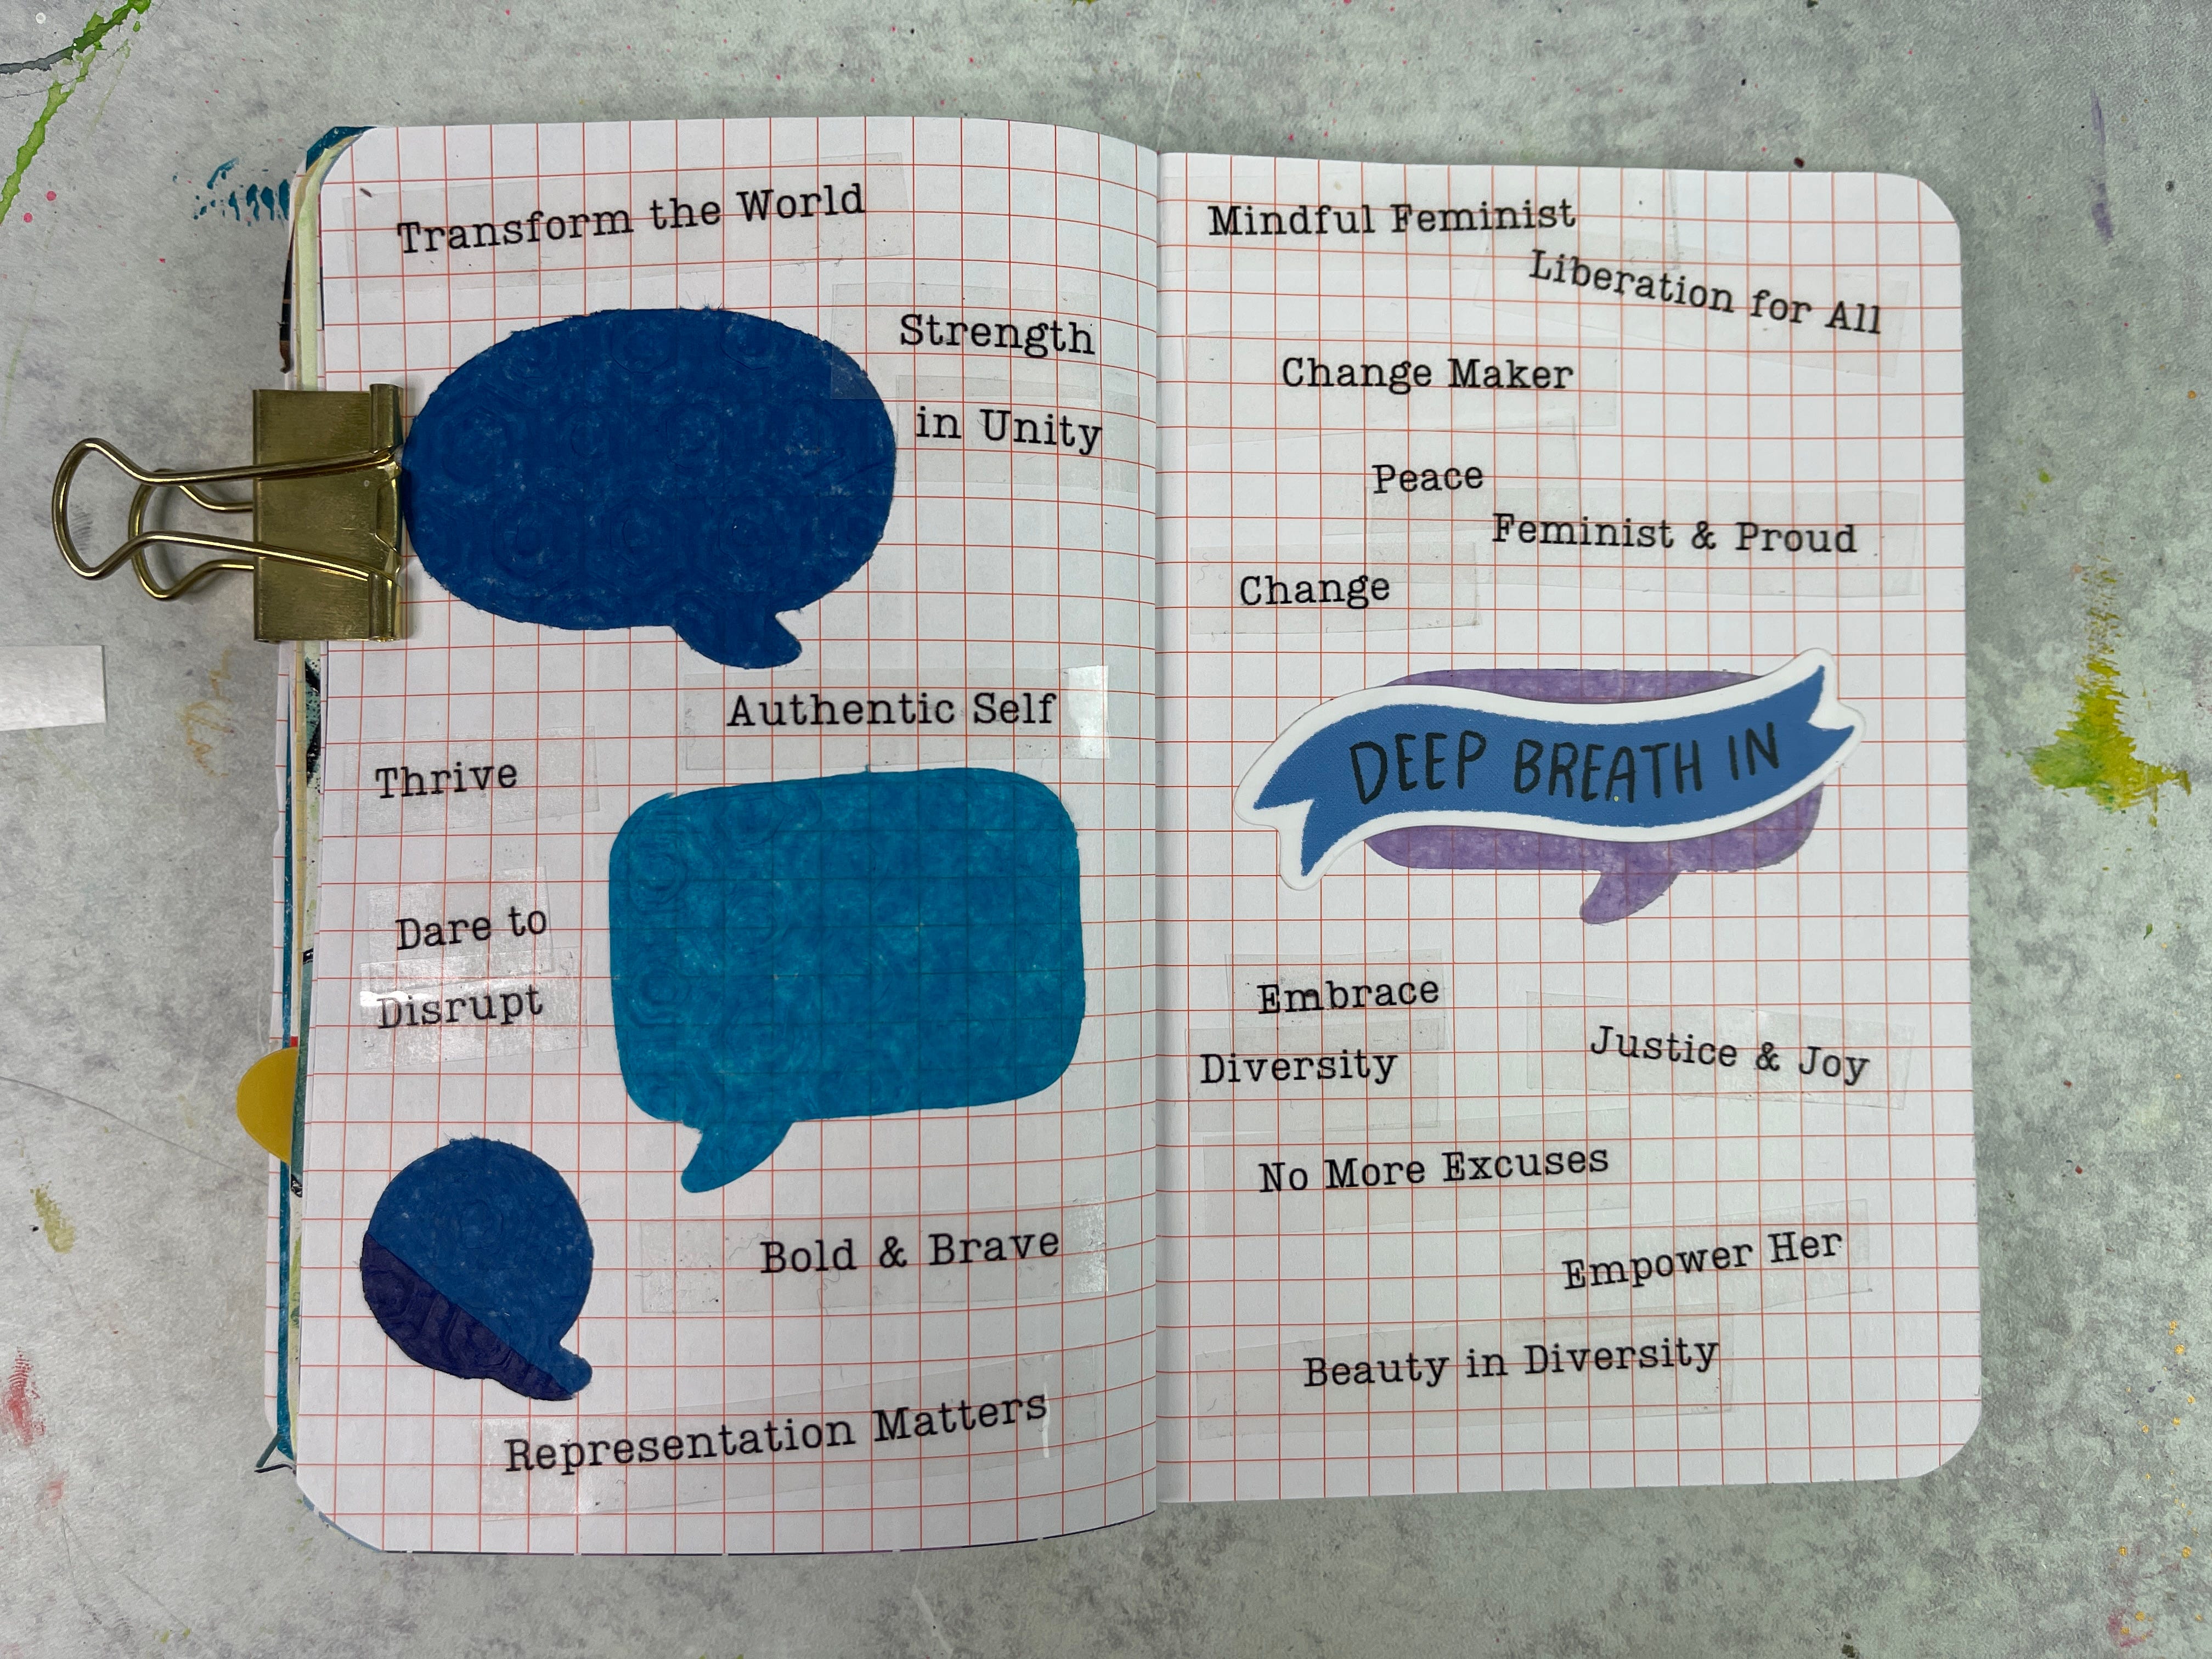 Transform the World
Strength
in Unity
Authentic Self
Thrive
Dare to
Disrupt
Bold & Brave
Representation Matters
Mindful Feminist
Liberation for All
Change Maker
Peace
Feminist & Proud
Change
DEEP BREATH IN
Embrace
Diversity
Justice & Joy
No More Excuses
Empower Her
Beauty in Diversity